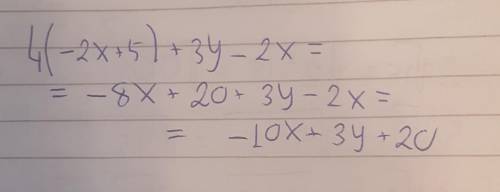 4(-2x+5)+3y-2x=
= -8x+20+3y-2x=
= -10x+3y+20